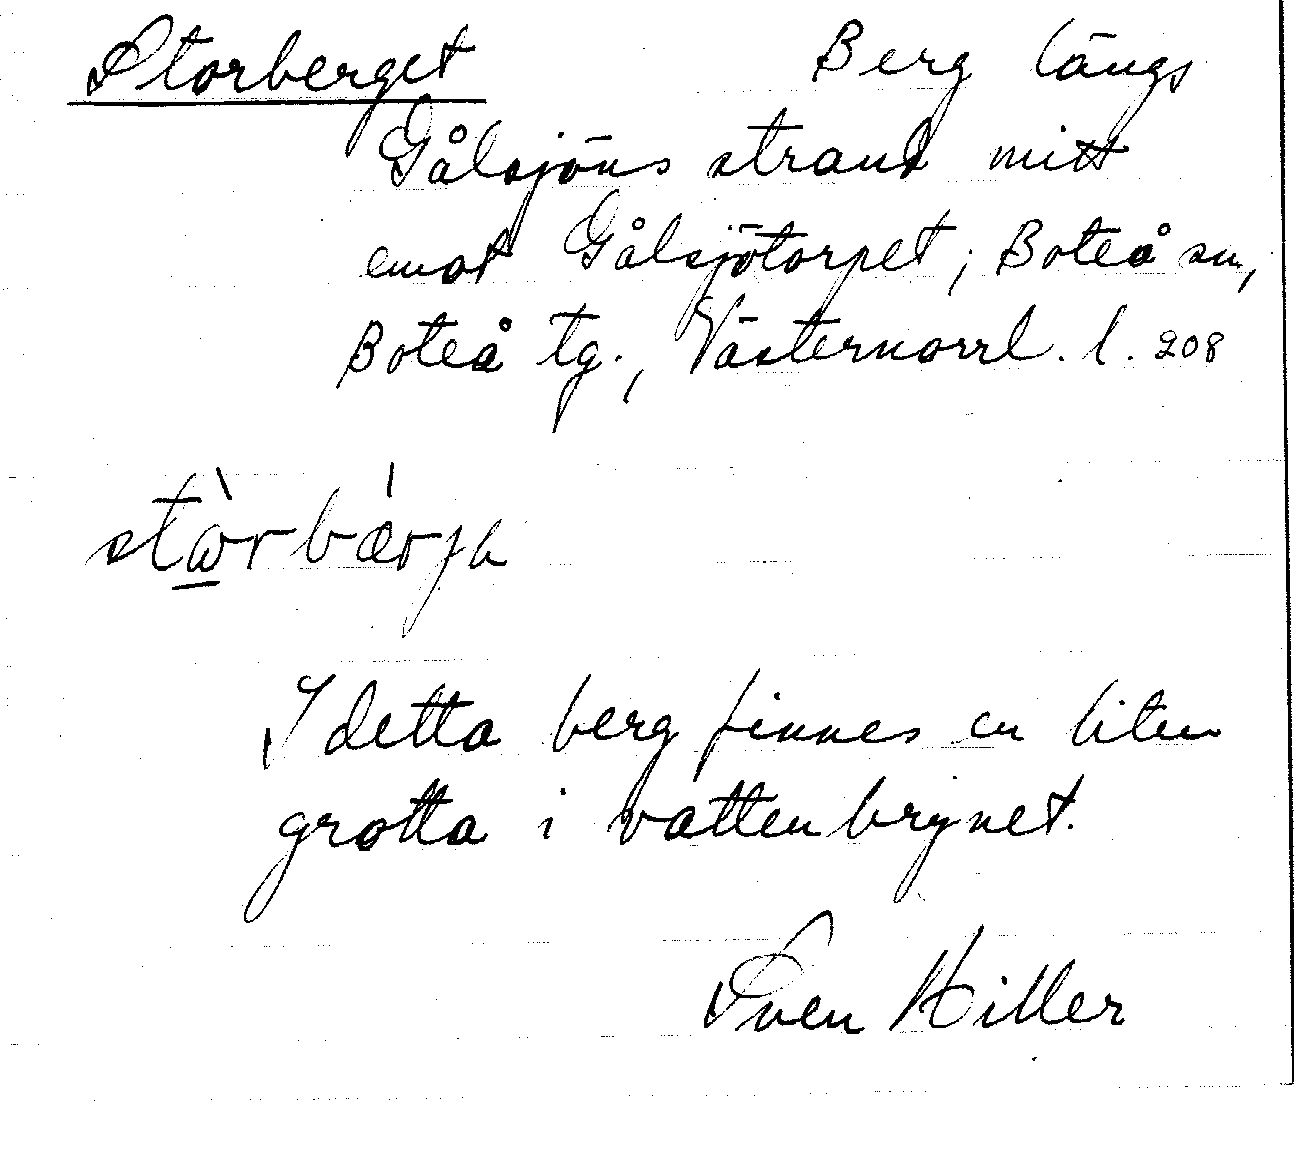 Storberget Berg längs
Gålsjöns strand mitt
emot Gålsjötorpet, Boteå sn,
Boteå tg., Västernorrl. l. 208
I detta berg finnes en liten
grotta i vattenbrynet.
Sven Hiller